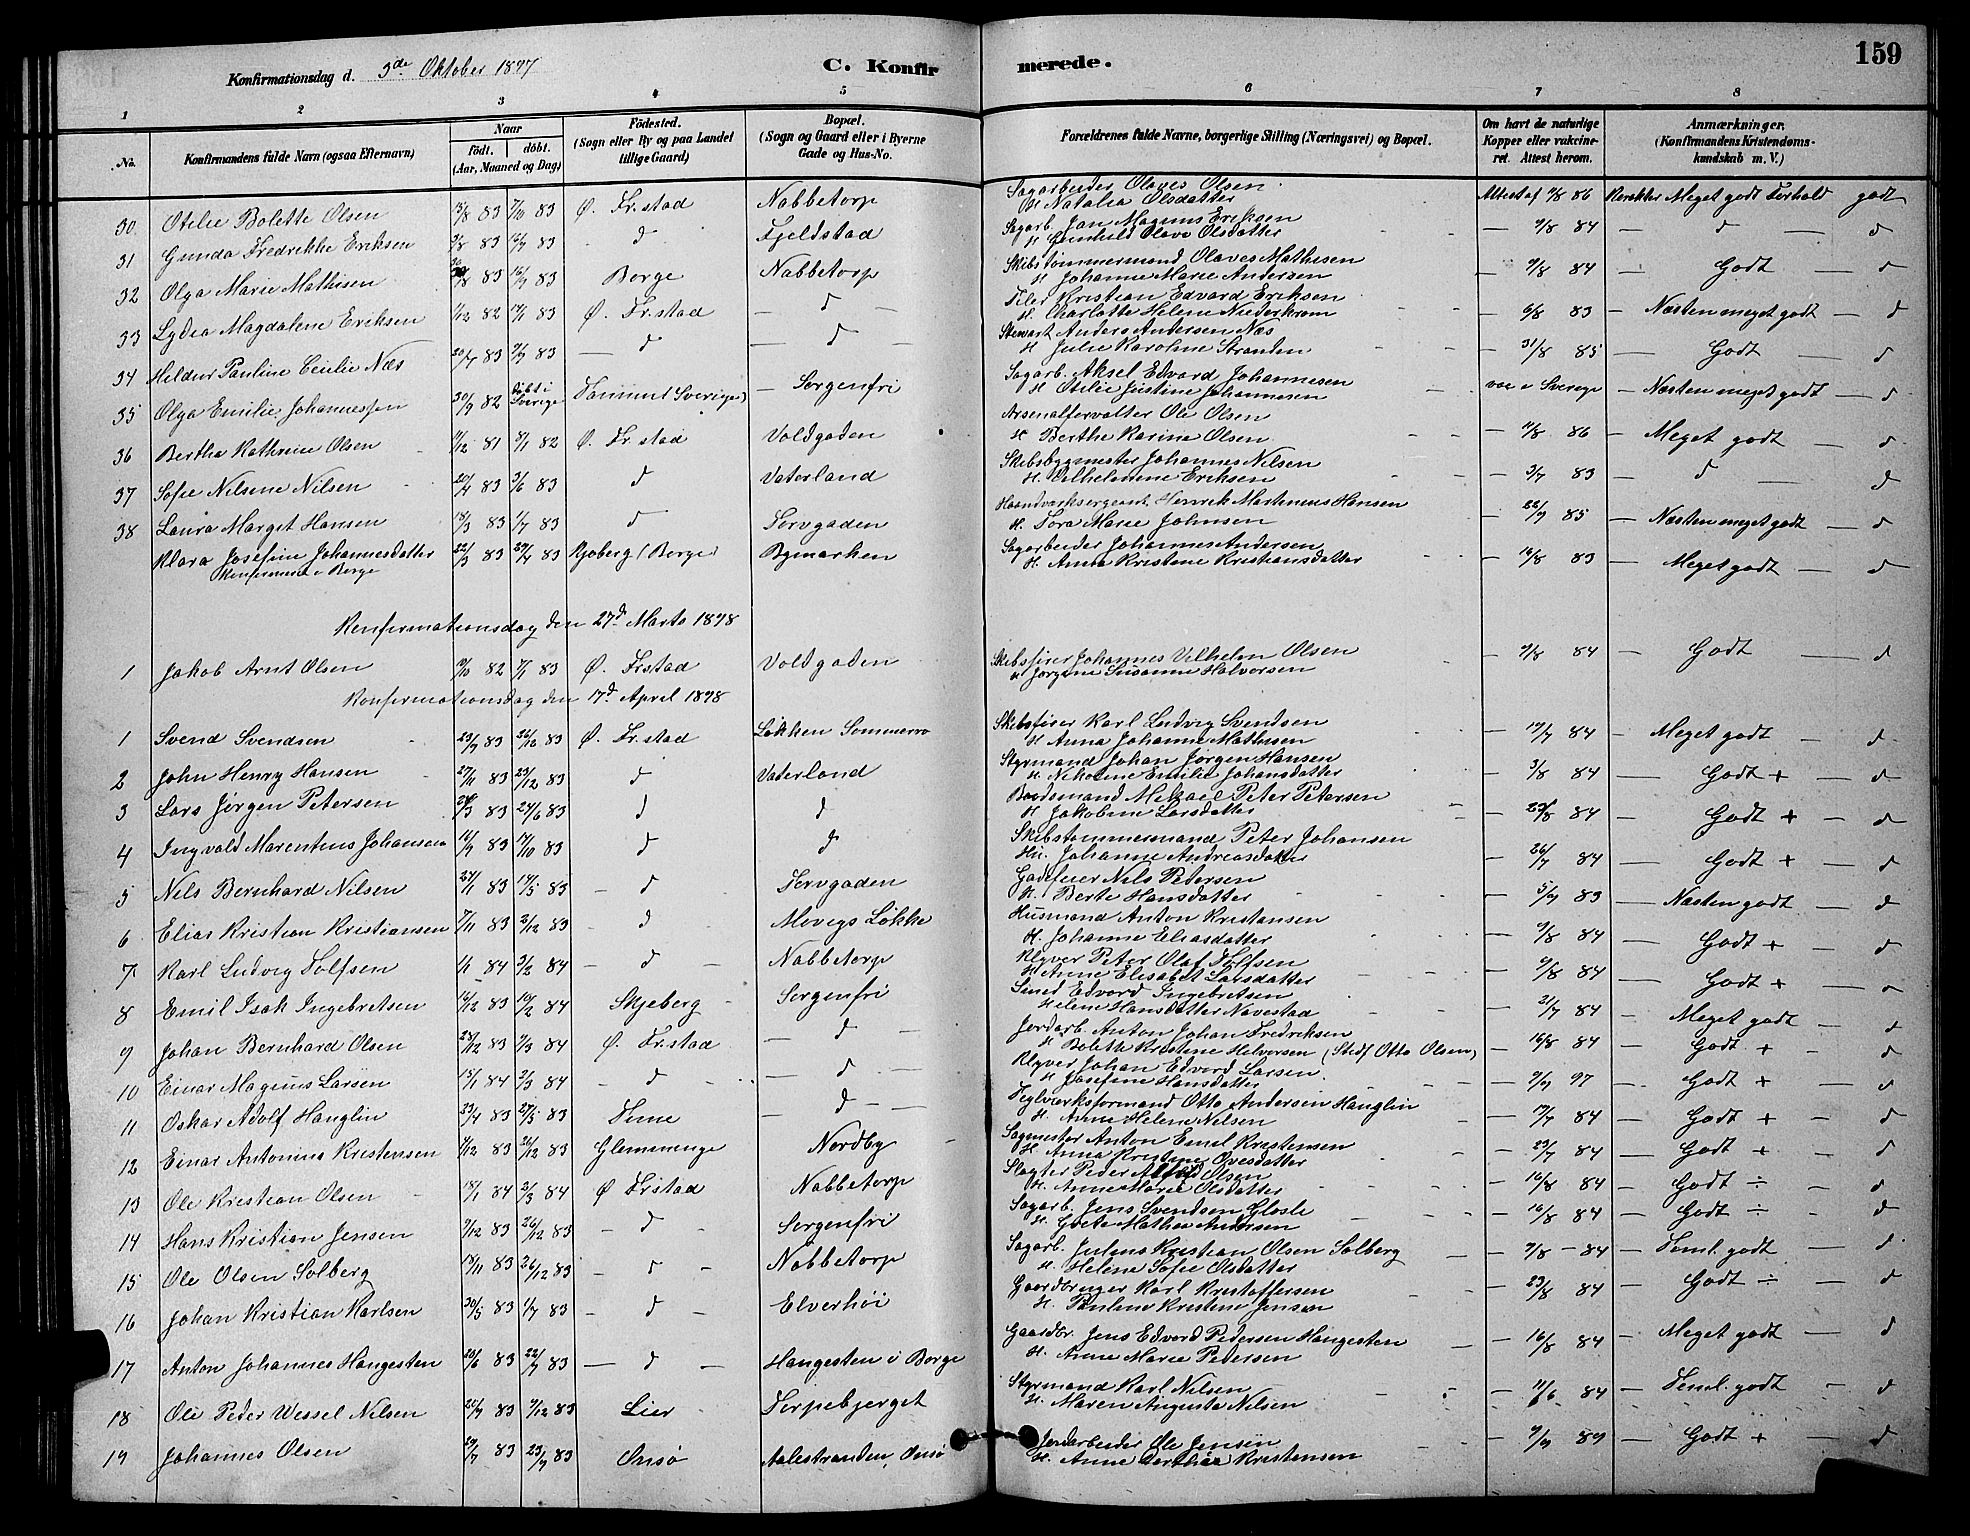 159
Konfirmationsdag d. 3de Oktober 1897 C. Konfirmerede.
1 2 3 4 5 6 7 8
No.
Konfirmandens fulde Navn (ogsaa Efternavn)
Naar
født. døbt.
(Aar, Maaned og Dag)
Fødested.
(Sogn eller By og paa Landet
tillige Gaard)
Bopæl.
(Sogn og Gaard eller i Byerne
Gade og Hus-No.
Forældrenes fulde Navne, borgerlige Stilling (Næringsvei) og Bopæl.
Om havt de naturlige
Kopper eller vakcine-
ret. Attest herom.
Anmærkninger.
(Konfirmandens Kristendoms-
kundskab m. V.)
30 Otelie Bolette Olsen 83 7/10 83 Ø. Fr.stad Nabbetorp Sagarbeider Olaves Olsen H. Natalia Olsdatter Attest af 9/8 86 Meget godt Forhold godt
31 Gunda Fredrikke Eriksen 83 83 d Fjeldstad Sagarb. Jan Magnus Eriksen H. Gunhild Olave Olsdatter 9/8 84 d d
32 Olga Marie Mathisen 83 16/9 83 Borge Nabbetorp Skibstømmermand Olaves Mathisen H. Johanne Marie Andersen 9/8 84 Godt d
33 Lydia Magdalene Eriksen 1/12 82 83 Ø. Fr.stad d Filer Kristian Edvard Eriksen H. Charlotte Helene Niederkrom 6/8 83 Næsten meget godt d
34 Hildur Pauline Cecilie Næs 20/7 83 83 d d Stewart Anders Andersen Næs H. Julie Karoline Stranden 31/8 85 Godt d
35 Olga Emilie Johannessen 30/9 82 døbt i Sverige Tanum (Sverige) Sorgenfri Sagarb. Aksel Edvard Johannesen H. Otelie Justine Johannesen vac i Sverige Næsten meget godt d
36 Bertha Kathrine Olsen 81 8/1 82 Ø. Fr.stad Voldgaden Arsenalforvalter Ole Olsen H. Berthe Karine Olsen 86 Meget godt d
37 Sofie Nilsine Nilsen 20/4 83 3/6 83 d Vaterland Skibsbygmester Johannes Nilsen H. Vilhelmine Eriksen 3/7 83 d d
38 Laura Marget Hansen 18/3 83 1/7 83 d Torvgaden Haandverksergeant Henrik Martinius Hansen H. Tora Marie Johnsen 22/9 85 Næsten meget godt d
Klara Josefine Johannesdatter 22/3 83 29/4 83 Kjøberg (Borge) Bymarken Sagarbeider Johannes Andersen H. Anna Kristene Kristiansdatter 16/8 83 Meget godt d
Konfirmeret i Borge
Konfirmationsdag den 27d Marts 1898
1 Jakob Arnt Olsen 82 7/1 83 Ø. Fr.stad Voldgaden Skibsfører Johannes Vilhelm Olsen H. Jørgine Susanne Halvorsen 9/8 84 Godt d
Konfirmationsdag den 17d April 1898
1 Svend Svendsen 23/9 83 26/10 83 Ø. Fr.stad Løkken Sommerro Skibsfører Karl Ludvig Svendsen H. Anna Johanne Mathisen 19/7 84 Meget godt d
2 John Henry Hansen 27/11 83 23/12 83 d Vaterland Styrmand Johan Jørgen Hansen H. Nikoline Emilie Johansdatter 3/8 84 Godt + d
3 Lars Jørgen Petersen 83 24/6 83 d d Baadsmand Mikael Peter Petersen H. Jakobine Larsdatter 84 Godt + d
4 Ingvald Marentius Johansen 16/9 83 14/10 83 d d Skibstømmermand Peter Johansen Hu. Johanne Andreasdatter 26/7 84 Godt + d
5 Nils Bernhard Nilsen 83 14/5 83 d Torvgaden Gadefeier Nils Petersen H. Berte Hansdatter 5/9 83 Næsten godt d
6 Elias Kristian Kristiansen 7/11 83 2/12 83 d Movigs Løkke Husmand Anton Kristansen H. Johanne Eliasdatter 9/8 84 Godt + d
7 Karl Ludvig Tolfsen 1/1 84 3/2 84 d Nabbetorp Klyver Peter Olaf Tolfsen H. Anne Elisabet Larsdatter 9/8 84 Godt + d
8 Emil Isak Ingebretsen 16/12 83 10/2 84 Skjeberg Sorgenfri Smed Edvard Ingebretsen Helene Hansdatter Navestad 21/7 84 Meget godt d
9 Johan Bernhard Olsen 83 84 Ø. Fr.stad d Jordarb. Anton Johan Fredriksen H. Bolette Kristine Helversen (Stedf. Otto Olsen) 16/8 84 Godt + d
10 Einar Magnus Larsen 15/1 84 2/3 84 d d Klyver Johan Edvard Larsen H. Josefine Hansdatter 9/9 97 Godt + d
11 Oskar Adolf Hanglin 23/4 83 27/5 83 Tune d Teglværksformand Otto Andersen Hanglin H. Anne Helene Nilsen 19/7 84 Godt + d
12 Einar Antonius Kristensen 83 83 Glemminge Nordby Sagmester Anton Emil Kristensen H. Anna Kristine Ovesdatter 23/7 84 Godt + d
13 Ole Kristian Olsen 18/1 84 2/3 84 Ø Fr.stad Nabbetorp Slagter Peder Olsen H. Anne Marie Olsdatter 16/8 84 Godt ÷ d
14 Hans Kristian Jensen 83 26/12 83 d Sorgenfri Sagarb. Jens Svendsen Glosli H. Grete Mathea Andersen 16/8 84 Godt ÷ d
15 Ole Olsen Solberg 83 26/12 83 d Nabbetorp Sagarb. Julius Kristian Olsen Solberg H. Helene Sofie Olsdatter 9/8 84 Teml. godt d
16 Johan Kristian Karlsen 30/5 83 1/7 83 d Elverhøi Gaardbruger Karl Kristoffersen H. Pauline Kristine Jensen 23/8 84 Godt ÷ d
17 Anton Johannes Hangesten 20/6 83 22/7 83 d Hangesten i Borge Gaardbr. Jens Edvard Pedersen Hangesten H. Anne Marie Pedersen 16/8 84 Meget godt d
18 Ole Peder Wessel Nilsen 83 83 Lier Torpebjerget Styrmand Karl Nilsen H. Maren Augusta Nilsen 84 Teml. godt d
19 Johannes Olsen 29/7 83 23/9 83 Onsø Aalestranden, Onsø Jordarbeider Ole Jensen H. Anne Dorthea Kristensen 89 Godt + d